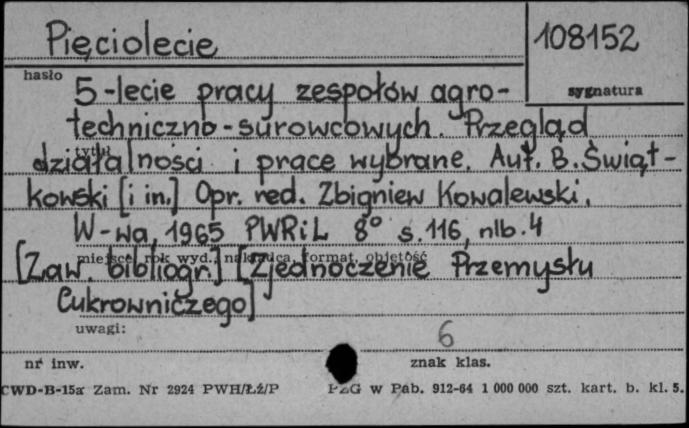 Pięciolecie
108152
hasło
sygnatura
5-lecie pracy zespołów agro-
techniczno-surowcowych. Przegląd
tytuł
działalności i prace wybrane. Aut. B. Świąt-
kowski [i in.] Opr. red. Zbigniew Kowalewski.
W-wa, 1965 PWRiL 8° s. 116, nlb. 4
miejsce, rok wyd., nakładca, format, objętość
[Zaw. bibliogr.] [Zjednoczenie Przemysłu
Cukrowniczego]
uwagi:
6
nr inw.
znak klas.
CWD-B-15a Zam. Nr 2924 PWH/Łź/P PZG w Pab. 912-64 1 000 000 szt. kart. b. kl. 5.